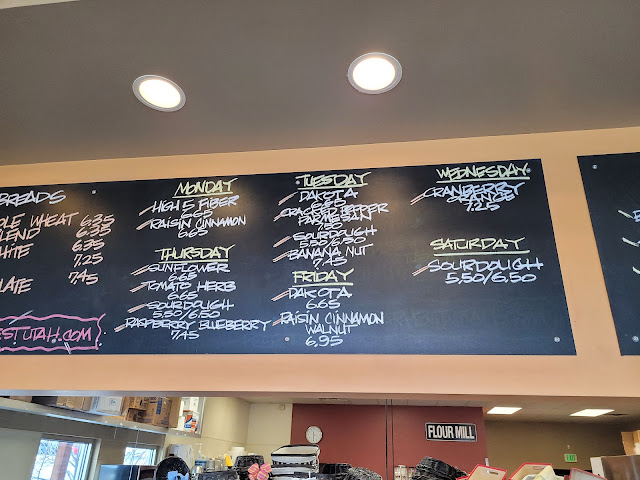 BREADS
OLE WHEAT 6.35
LEND 6.35
HITE 6.35
7.25
LATE 7.45
ESTUTAH.COM
MONDAY
HIGH 5 FIBER
6.65
RAISIN CINNAMON
6.65
THURSDAY
SUNFLOWER
6.65
TOMATO HERB
6.65
SOURDOUGH
5.50/6.50
RASPBERRY BLUEBERRY
7.45
TUESDAY
DAKOTA
PEPPER
SOURDOUGH
5.50/6.50
BANANA NUT
7.45
FRIDAY
DAKOTA
6.65
RAISIN CINNAMON
WALNUT
6.95
WEDNESDAY
CRANBERRY
ORANGE
7.25
SATURDAY
SOURDOUGH
5.50/6.50
FLOUR MILL